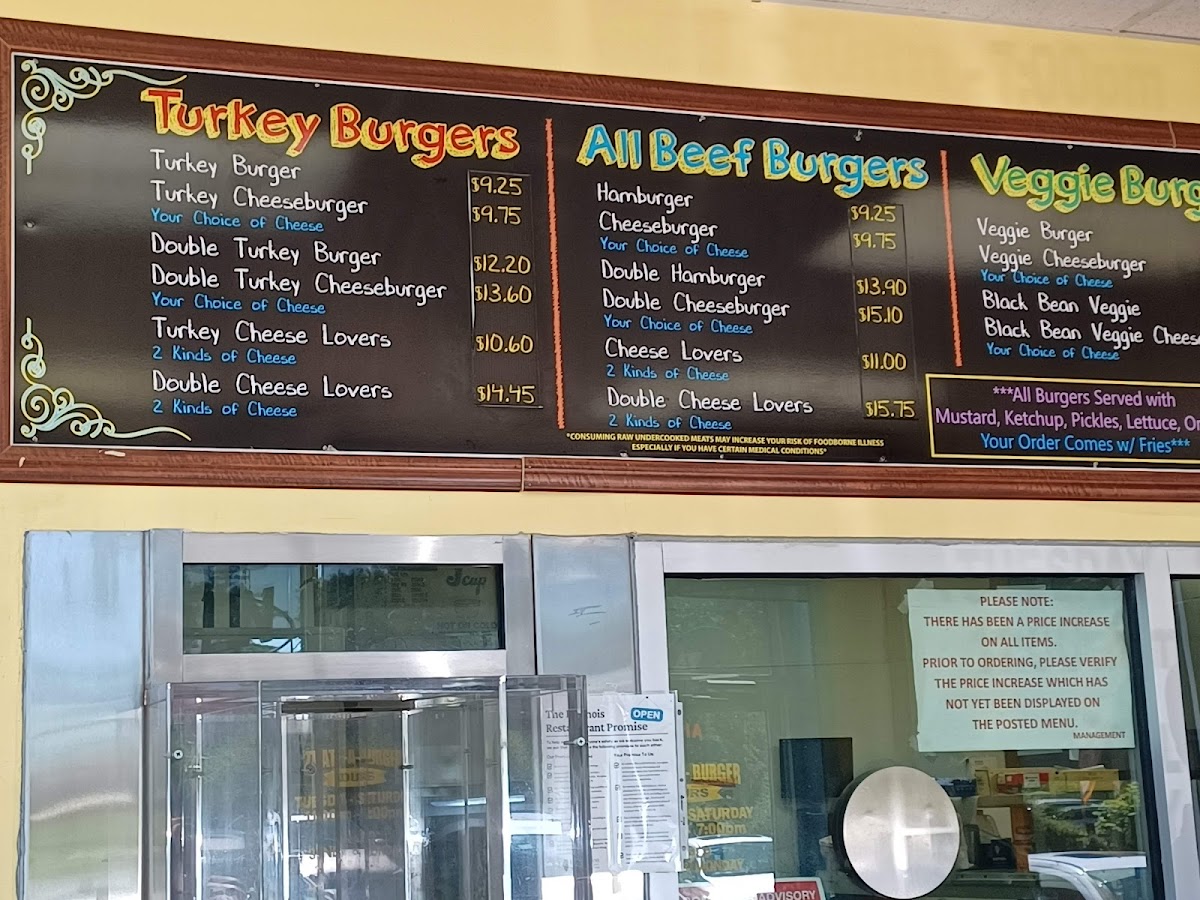 Turkey Burgers
Turkey Burger $9.25
Turkey Cheeseburger $9.75
Your Choice of Cheese
Double Turkey Burger $12.20
Double Turkey Cheeseburger $13.60
Your Choice of Cheese
Turkey Cheese Lovers $10.60
2 Kinds of Cheese
Double Cheese Lovers $14.45
2 Kinds of Cheese
All Beef Burgers
Hamburger $9.25
Cheeseburger $9.75
Your Choice of Cheese
Double Hamburger $13.90
Double Cheeseburger $15.10
Your Choice of Cheese
Cheese Lovers $11.00
2 Kinds of Cheese
Double Cheese Lovers $15.75
2 Kinds of Cheese
*CONSUMING RAW UNDERCOOKED MEATS MAY INCREASE YOUR RISK OF FOODBORNE ILLNESS
ESPECIALLY IF YOU HAVE CERTAIN MEDICAL CONDITIONS*
Veggie Burg
Veggie Burger
Veggie Cheeseburger
Your Choice of Cheese
Black Bean Veggie
Black Bean Veggie Cheese
Your Choice of Cheese
***All Burgers Served with
Mustard, Ketchup, Pickles, Lettuce,
Your Order Comes w/ Fries***
PLEASE NOTE:
THERE HAS BEEN A PRICE INCREASE
ON ALL ITEMS.
PRIOR TO ORDERING, PLEASE VERIFY
THE PRICE INCREASE WHICH HAS
NOT YET BEEN DISPLAYED ON
THE POSTED MENU.
MANAGEMENT
OPEN
Restaurant Promise
BURGER
SATURDAY
7:00pm
ADVISORY